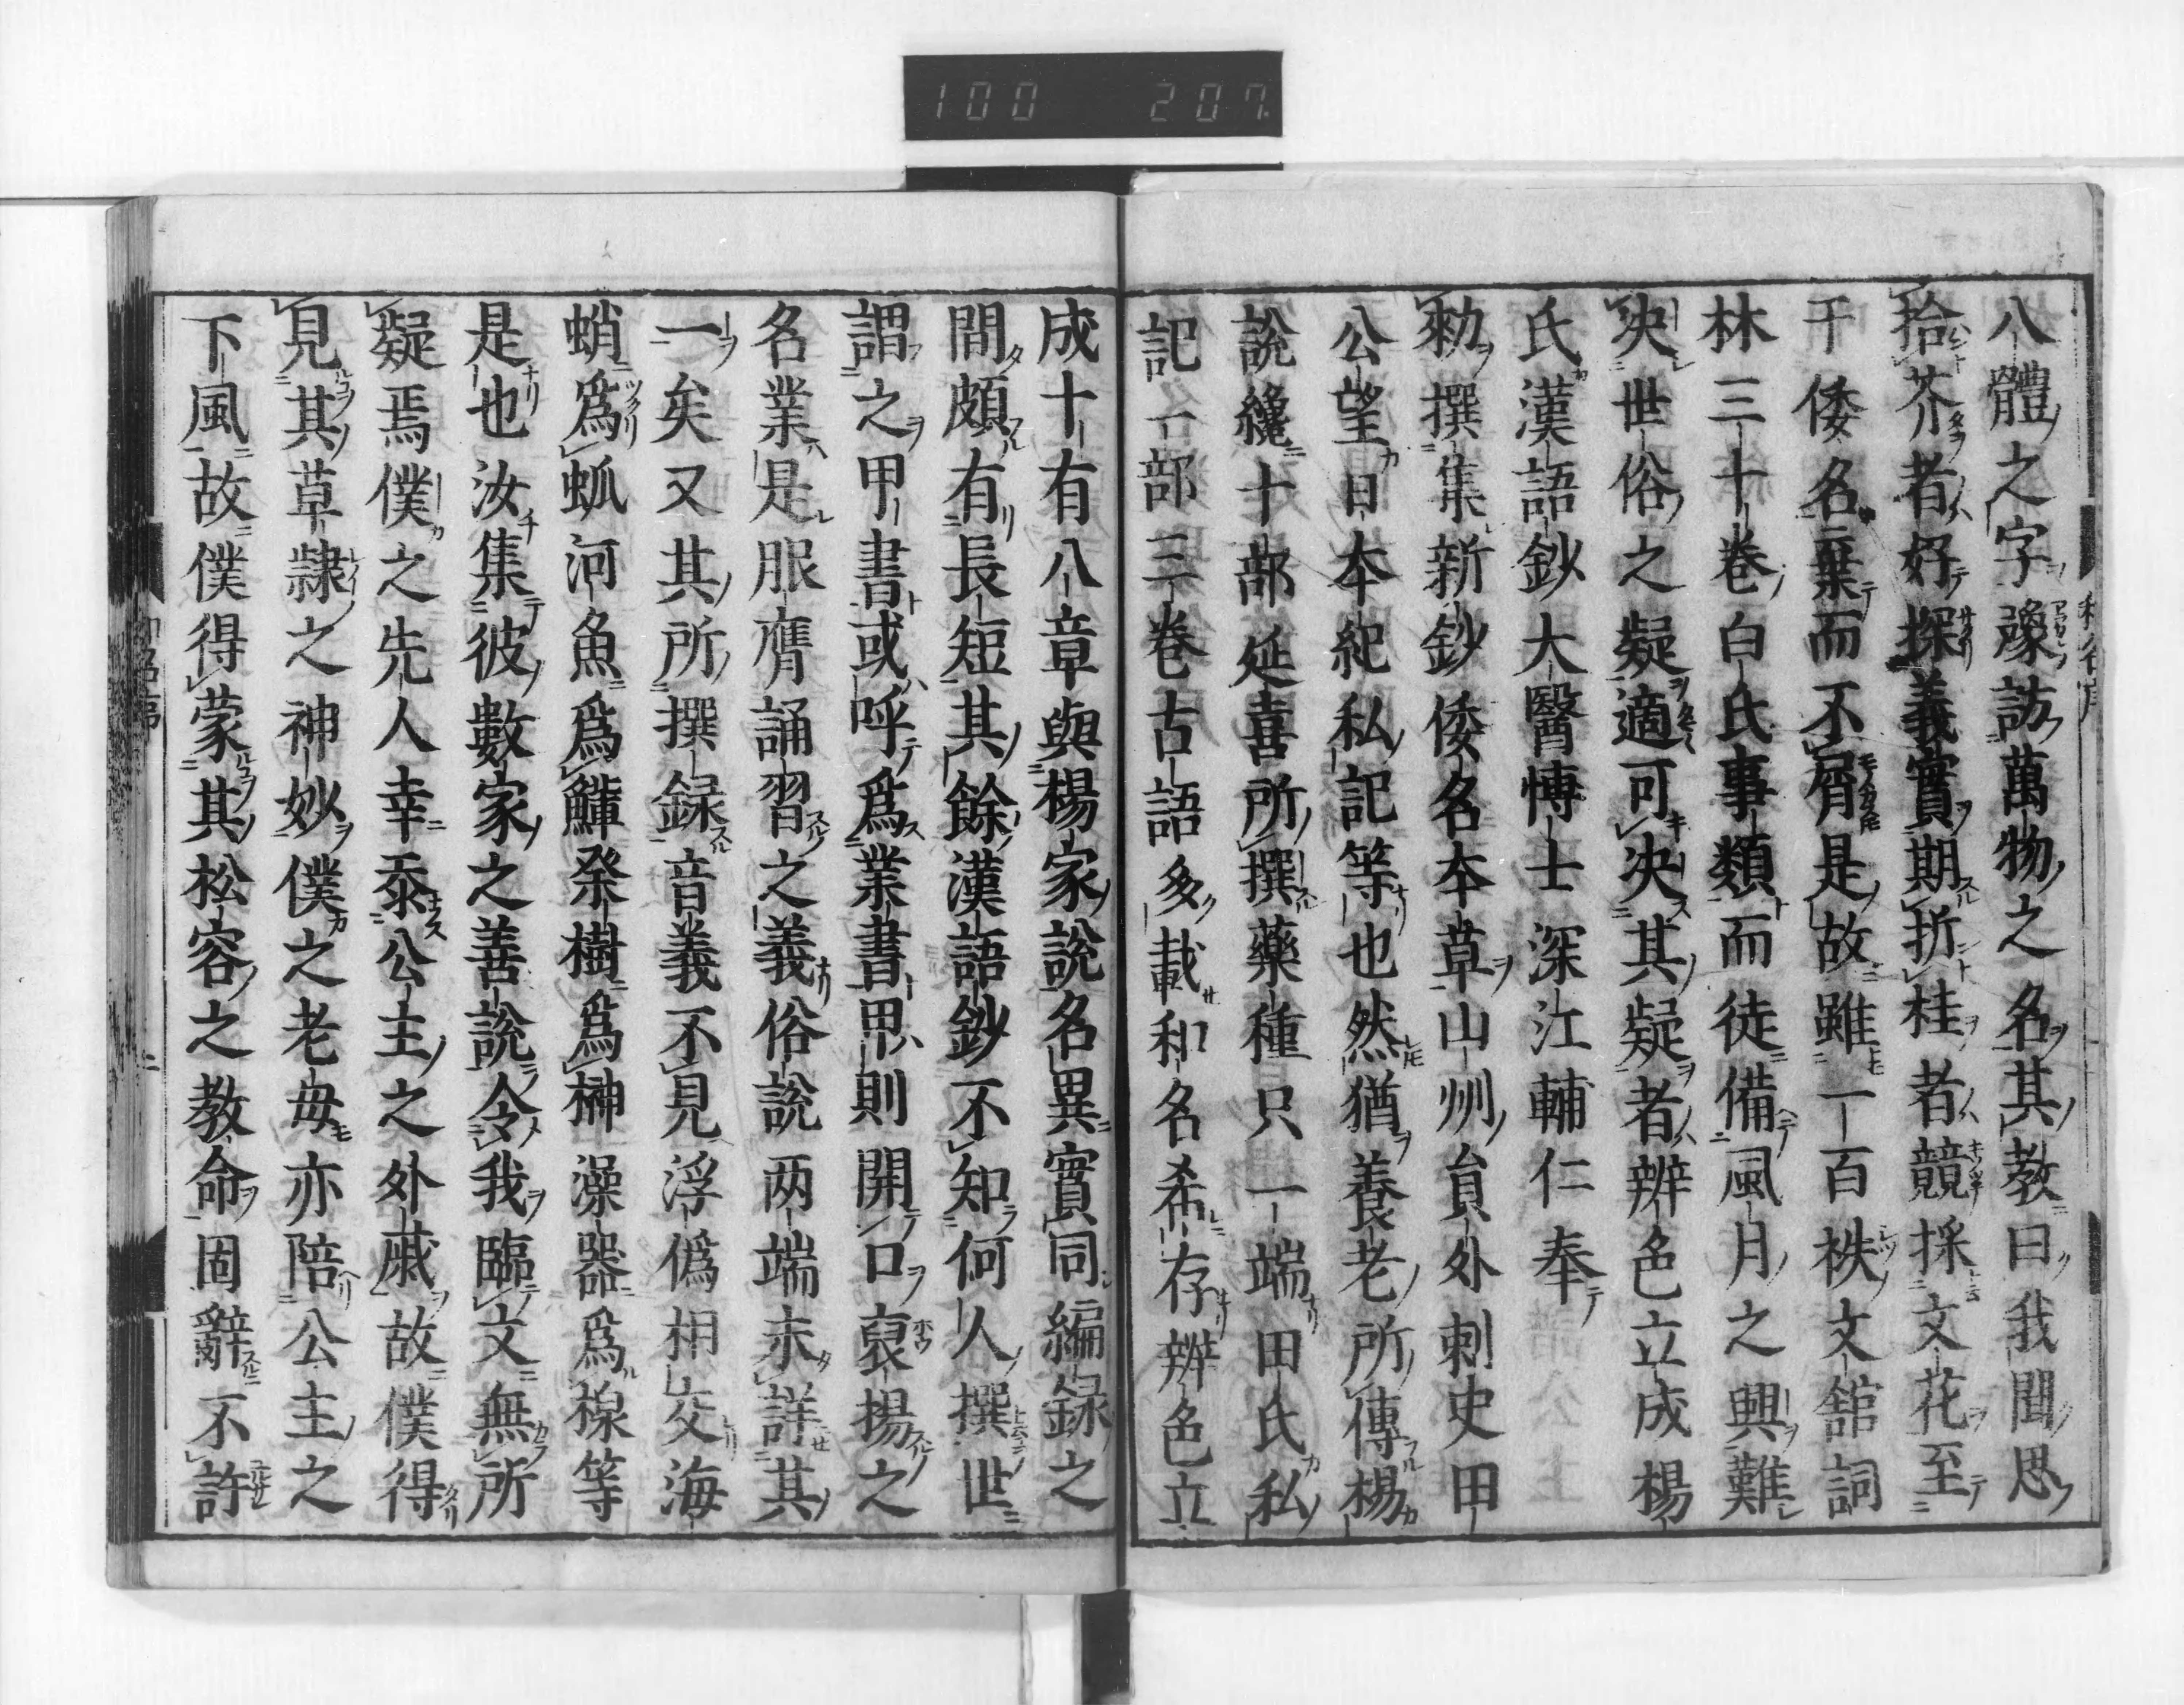 100 207
八體之字豫訪萬物之名其教曰我聞思
拾芥者好探義實期折桂者競採文花至
于倭名棄而不屑是故雖一百帙文舘詞
林三十卷白氏事類而徒備風月之興難
决世俗之疑適可决其疑者辨色立成楊
氏漢語鈔大醫博士深江輔仁奉
勑撰集新鈔倭名本草山州貟外刺史田
公望日本紀私記等也然猶養老所傳楊
說纔十部延喜所撰藥種只一端田氏私
記一部三卷古語多載和名希存辨色立
成十有八章與楊家說名異實同編録之
間頗有長短其餘漢語鈔不知何人撰世
謂之甲書或呼爲業書甲則開口裒揚之
名業是服膺誦習之義俗說两端未詳其
一矣又其所撰録音義不見浮僞相交海
蛸爲𧊀河魚爲鯶祭樹爲榊澡器爲楾等
是也汝集彼數家之善說令我臨文無所
疑焉僕之先人幸忝公主之外戚故僕得
見其草隷之神妙僕之老母亦陪公主之
下風故僕得蒙其松容之教命固辭不許